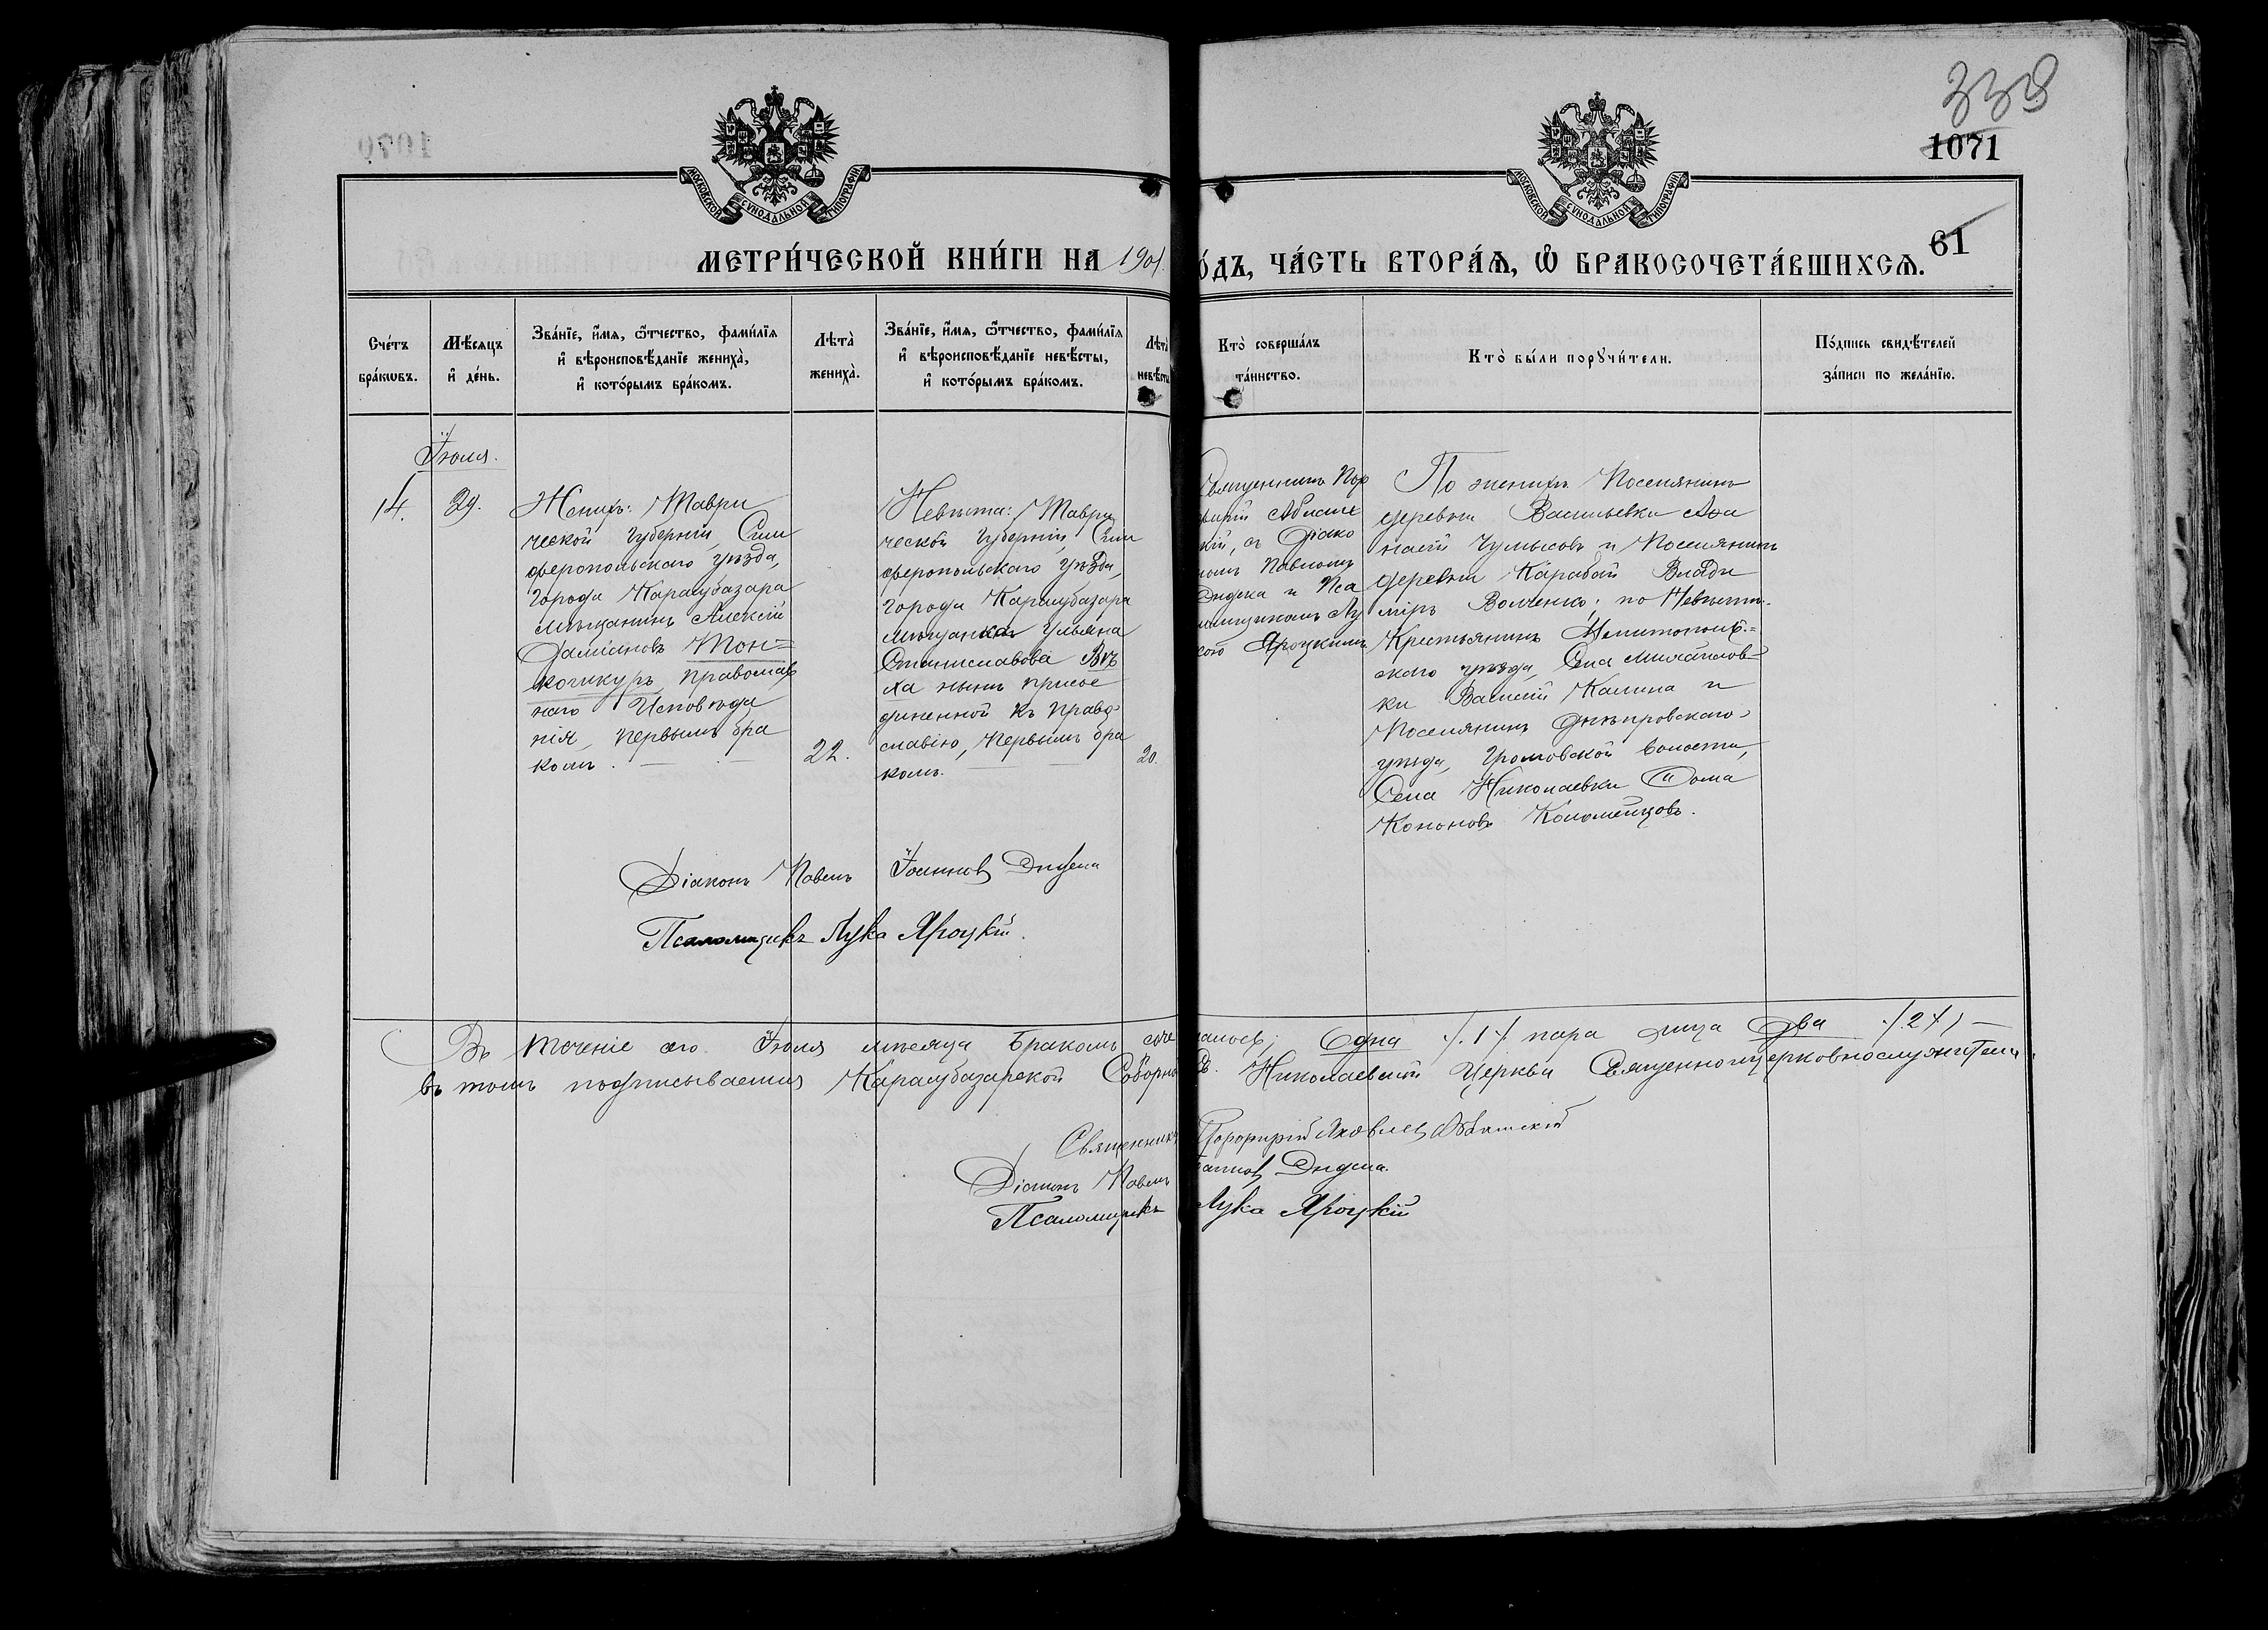 339
1071
61
МОСКОВСКОЙ СѴНОДАЛЬНОЙ ТИПОГРАФІИ
МОСКОВСКОЙ СѴНОДАЛЬНОЙ ТИПОГРАФІИ
МЕТРИ́ЧЕСКОЙ КНИ́ГИ НА 1901
О́ДЪ, ЧА́СТЬ ВТОРА́Ѧ, Ѽ БРАКОСОЧЕТА́ВШИХСѦ.
Сче́тъ бра́кѡвъ.
Мѣ́сяцъ и҆ де́нь.
Зва́нїе, и҆́мя, ѻ҆́тчество, фами́лїя
и҆ вѣроисповѣ́данїе жениха̀,
и҆ кото́рымъ бра́комъ.
Лѣта̀ жениха̀.
Зва́нїе, и҆́мя, ѻ҆́тчество, фами́лїя
и҆ вѣроисповѣ́данїе невѣ́сты,
и҆ кото́рымъ бра́комъ.
Лѣта̀ невѣ́сты
Кто̀ соверша́лъ
та́инство.
Кто̀ бы́ли порꙋчи́тели.
По́дпись свидѣ́телей
за́писи по жела́нїю.
Іюля.
14.
29.
Женихъ: Таври
ческой Губерніи, Сим
феропольскаго уѣзда,
города Карасубазара
мѣщанинъ Алексій
Даміановъ Тон=
кочкуръ, православ
наго Исповѣда
нія, первымъ бра
комъ.
22.
Невѣста: Таври
ческой Губерніи, Сим
феропольскаго уѣзда,
города Карасубазара
мѣщанка Ульяна
Станиславова
ха нынѣ присое
диненной къ право
славію, первымъ бра
комъ.
20.
Священникъ Пор
фирій
кій, съ Діако
номъ Павломъ
Дидека и Пса
ломщикомъ Лу
кою Яроцкимъ
По женихѣ Поселянинъ
деревни Васильевки Афа
насій и Поселянинъ
деревни Карабай Влади
міръ Волченко; по Невѣстѣ
Крестьянинъ Мелитополь=
скаго уѣзда, Села Михайлов=
ки Василій Калина и
Поселянинъ Днѣпровскаго
уѣзда, Громовской волости,
Села Николаевки Фома
Кононовъ Коломейцовъ.
Діаконъ Павелъ Іоанновъ
Псаломщикъ Лука Яроцкій.
Въ теченіе сего Іюля мѣсяца Бракомъ соче
талось; Одна /.1/. пара лица Два /.2/. —
въ томъ подписываемся Карасубазарской Соборно
Николаевской Церкви Священноцерковнослужители.
Священникъ Порфирій Яковлевъ
Діаконъ Павелъ
Псаломщикъ Лука Яроцкій